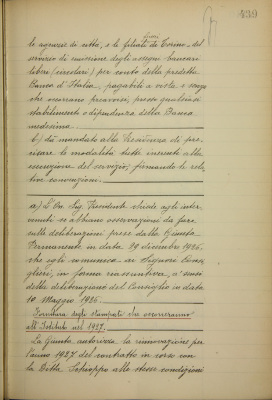 439
le agenzie di città, e le filiali fuori di Torino - del
servizio di emissione degli assegni bancari
liberi (circolari) per conto della predetta
Banca d'Italia, pagabili a vista, e senza
che occorrano preavvisi, presso qualsiasi
stabilimento e dipendenza della Banca
medesima.
b) dà mandato alla Presidenza di pre-
cisare le modalità tutte inerenti alla
esecuzione del servizio, firmando le rela-
tive convenzioni.
a) L'On. Sig. Presidente chiede agli inter-
venuti se abbiano osservazioni da fare
sulle deliberazioni prese dalla Giunta
Permanente in data 29 dicembre 1926,
che egli comunica ai Signori Consi-
glieri, in forma riassuntiva, a' sensi
della deliberazione del Consiglio in data
10 Maggio 1926.
Fornitura degli stampati che occorreranno
all'Istituto nel 1927.
La Giunta autorizza la rinnovazione per
l'anno 1927 del contratto in corso con
la Ditta Schioppo alle stesse condizioni